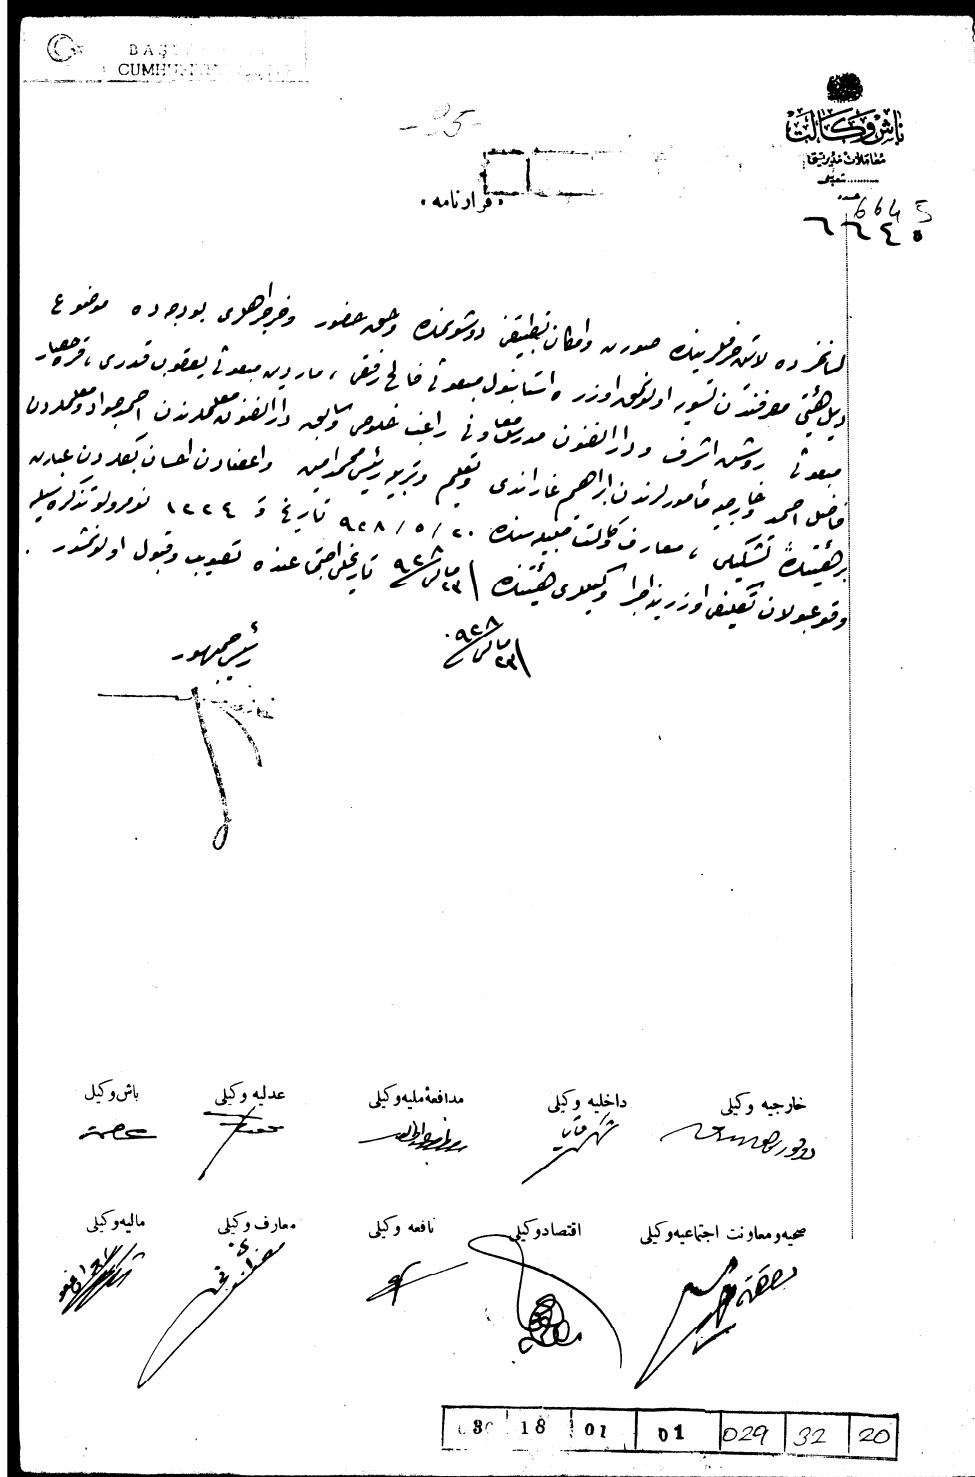 BAŞ
CUMHU
باش وكالت
معاملات مديريتى
عدد
6645
٦٦٤٥
-95-
قرارنامه
لسانمزده لاتين حرفلرينك صورت و امكان تطبيقنى دوشونمك وحق حضور و خرجراهلرى بودجه ده موضوع
ديل هيئتى معرفتندن تسويه اولونمق اوزره استانبول مبعوثى فالح رفقى ، ماردين مبعوثى يعقوب قدرى ، قره حصار
مبعوثى روشن اشرف و دار الفنون مدرس معاونى راغب خلوصى و سابق دار الفنون معلملرندن احمد جواد و معلملردن
فاضل احمد و خارجيه مأمورلرندن ابراهيم غراندى و تعليم و تربيه رئيسى محمد امين و اعضادن احسان بكلردن عبارت
بر هيئتك تشكيلى ، معارف وكالت جليله سنك ٢٠ / ٥ / ٩٢٨ تاريخ و ١٢٢٤ نومرولو تذكره سيله
وقوعبولان تكليفى اوزرينه اجرا وكيللرى هيئتنك ٢٣ مايس ٩٢٨ تاريخلى اجتماعنده تصويب و قبول اولونمشدر .
٢٣ مايس ٩٢٨
رئيس جمهور
باش وكيل
عدليه وكيلى
مدافعهٔ مليه وكيلى
داخليه وكيلى
خارجيه وكيلى
ماليه وكيلى
معارف وكيلى
نافعه وكيلى
اقتصاد وكيلى
صحيه و معاونت اجتماعيه وكيلى
030 18 01 01 029 32 20